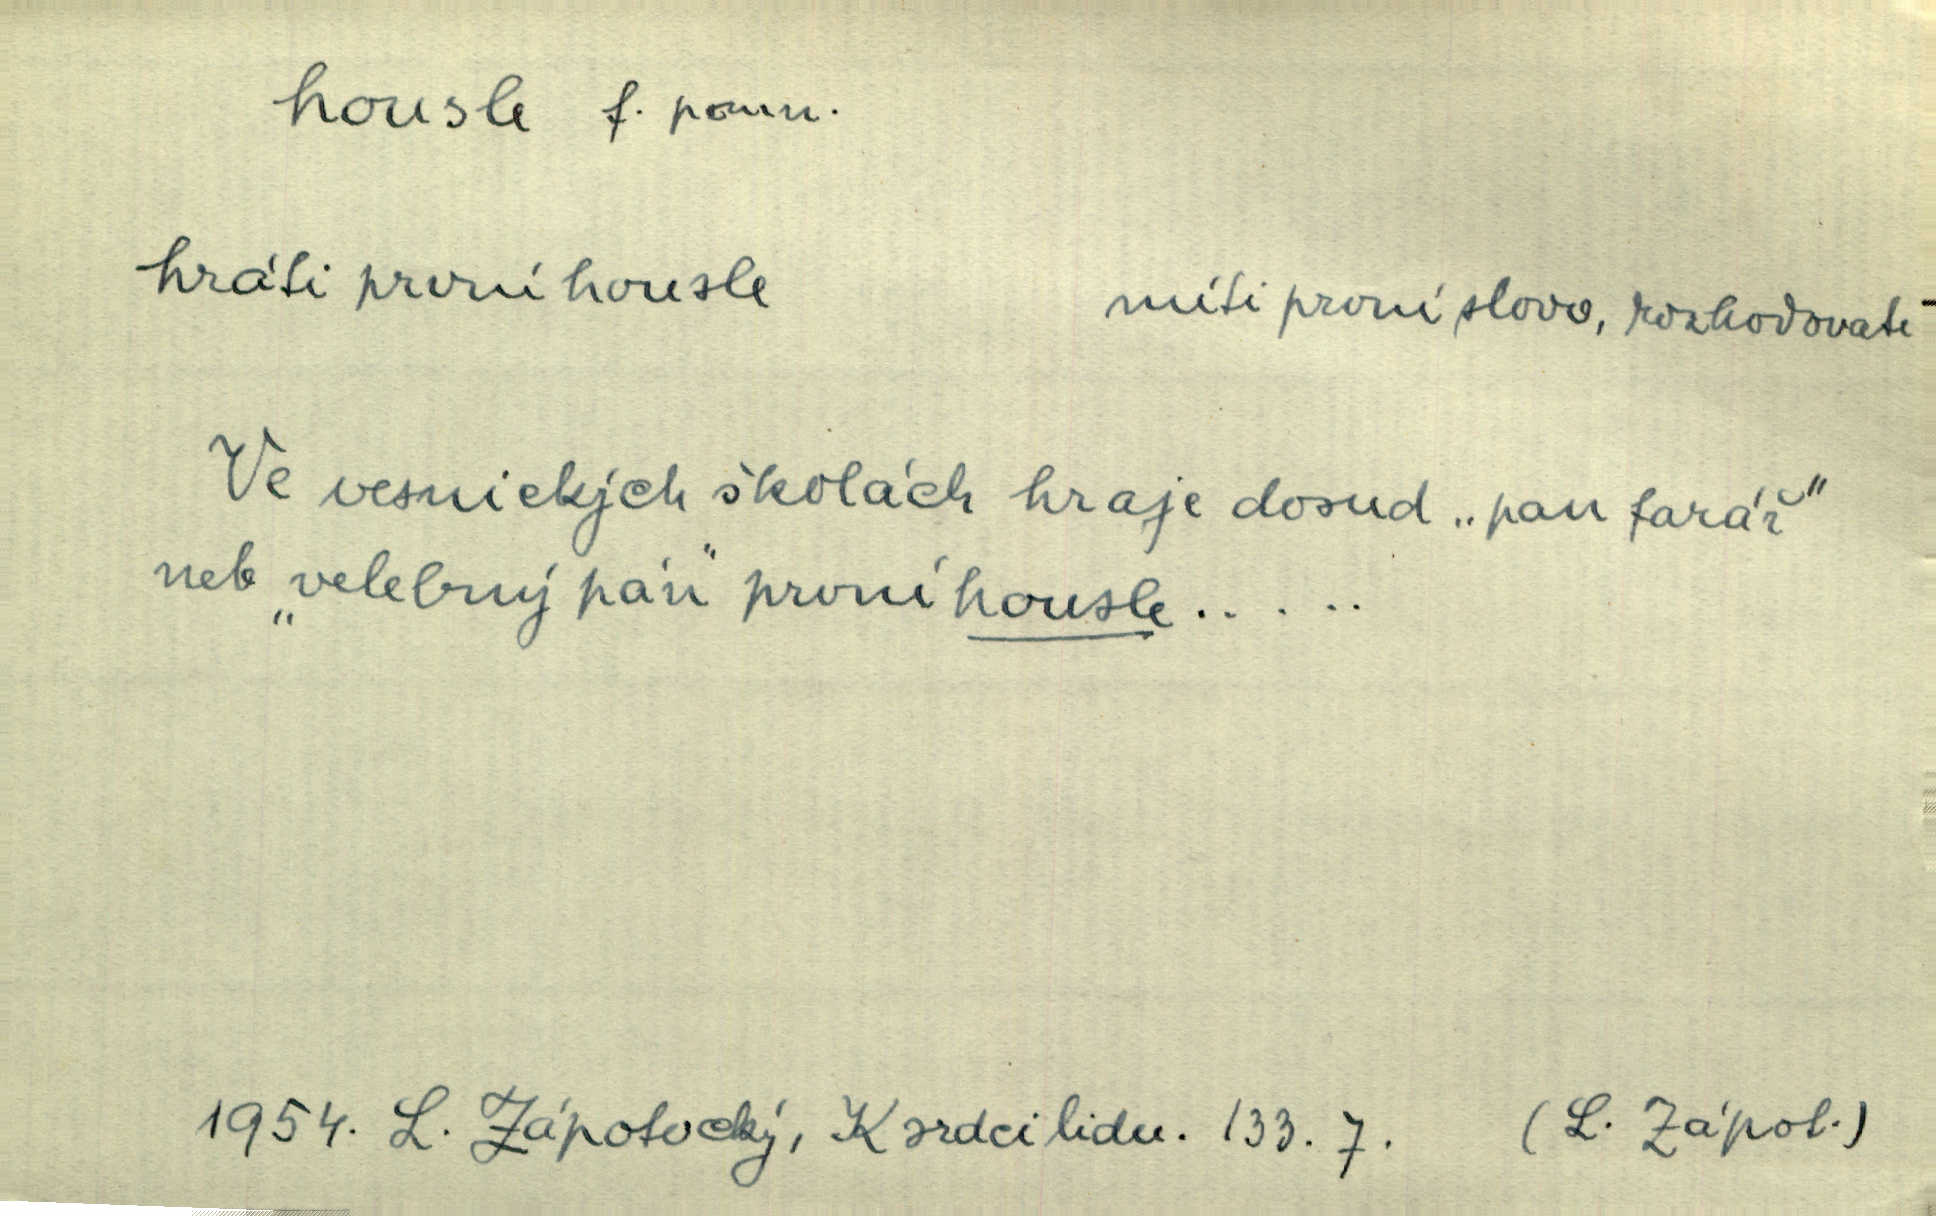 housle f. pomn.
hráti první housle míti první slovo, rozhodovati
Ve vesnických školách hraje dosud „pan farář"
neb „velebný pán" první housle.....
1954. L. Zápotocký, K srdci lidu. 133. 7. (L. Zápot.)